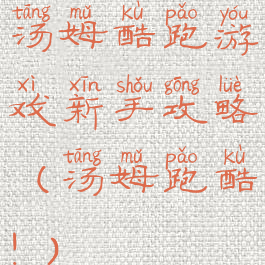 tāng mǔ kù pǎo yóu
汤姆酷跑游
xì xīn shǒu gōng lüè
戏新手攻略
tāng mǔ pǎo kù
（汤姆跑酷
！）